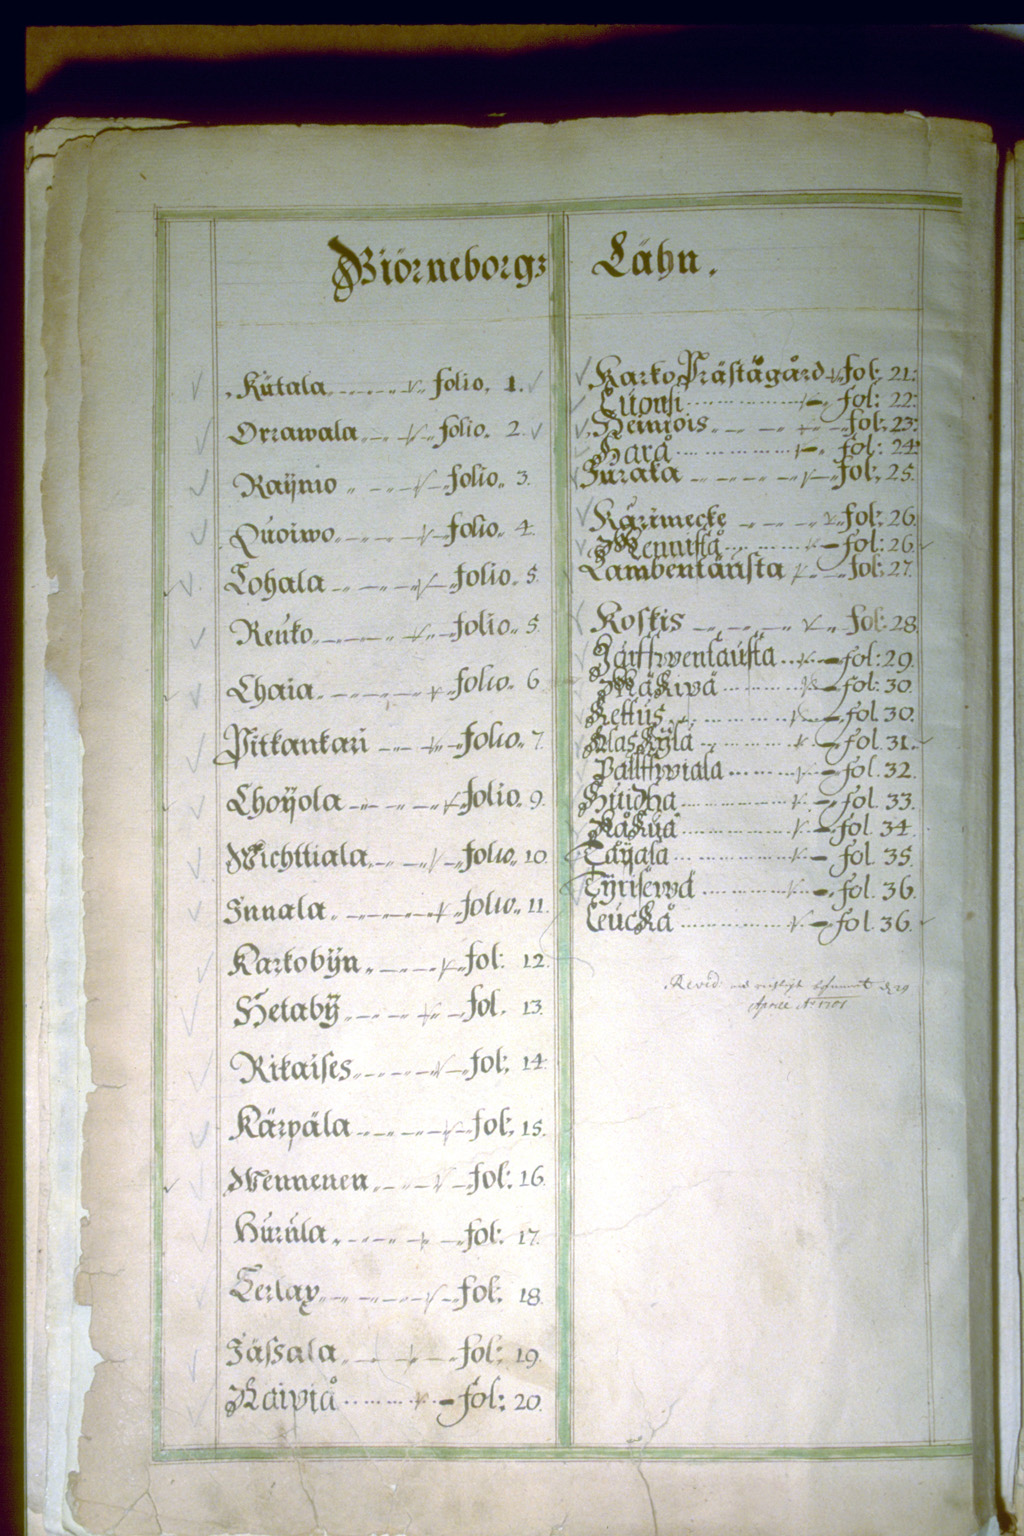 Biörneborgs Lähn.
Kütala folio. 1.
Orrawala folio. 2
Raÿnio folio. 3.
Quoiwo folio. 4.
Lohala folio. 5
Reuko folio. 5
Chaia folio. 6
Pitkankari folio. 7.
Choÿola folio. 9
Wichttiala folio. 10
Innala folio. 11
Karkobÿn fol: 12
Hetabÿ fol. 13
Rikaises fol: 14
Kärpäla fol: 15
Wennenen fol: 16
Hurula fol: 17.
Terlax fol: 18
Jässala fol: 19
Raipiå fol: 20.
Karko Prästägård fol: 21:
Tuonsi fol: 22:
Heinjois fol: 23:
Hara fol: 24:
Jurala fol: 25.
Kärrmecke fol: 26.
Wennistå fol: 26.
Lambentausta fol: 27.
Koskis fol: 28
Järffwentausta fol: 29.
Mäkipå fol: 30.
Kettus fol. 30.
MasKÿla fol. 31.
Pallffwiala fol. 32.
Huidha fol. 33.
fol. 34.
Taÿala fol. 35.
Tÿrisewå fol. 36.
Leuckå fol. 36.
Revid:
Aprill A° 1701